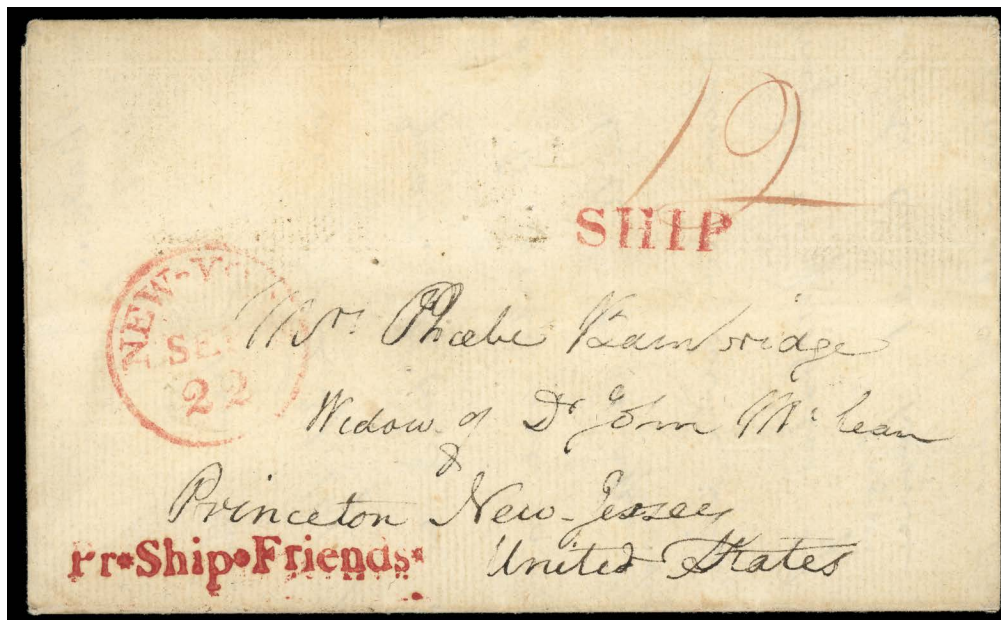 12
SHIP
NEW-YO
SE
22
Mrs Phoebe Bainbridge
Widow of Dr John McLean
Princeton New-Jessey
United States
Pr•Ship•Friends*